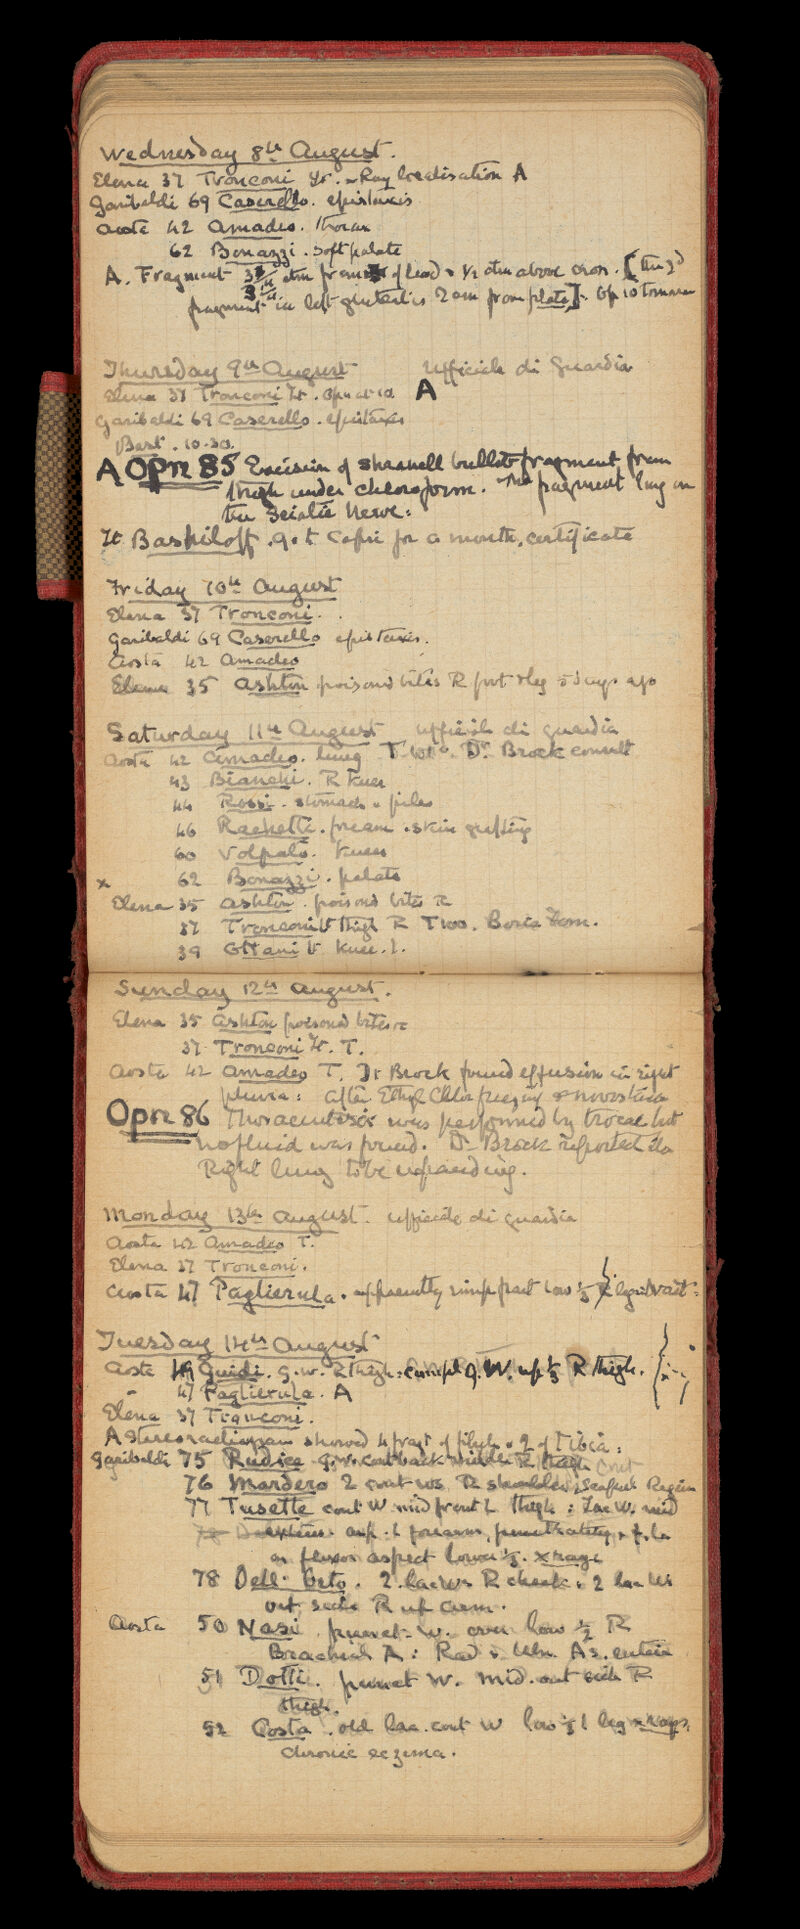 Wednesday 8th August.
Elena 37 Tronconi Lt. x-Ray localisation A
Garibaldi 69 Caserello. epistaxis
Aosta 42 Amadeo. thorax
62 Bonazzi. soft palate
A. Fragment ctm from of lead & 1/2 ctm above cross. [The 2d
fragment in left gluteal is 2 cm from plate]. Op 10 tomorrow
Thursday 9th August ufficiale di Guardia
Elena 37 Tronconi Lt. Opn at 10 A
Garibaldi 69 Caserello. epistaxis
10.30.
A Opn 85 Excision of shrapnell bullet fragment from
thigh under chloroform. The fragment lay on
the Sciatic Nerve:
Lt Baskiloff. got Capri for a month, certificate
Friday 10th August
Elena 37 Tronconi.
Garibaldi 69 Caserello epistaxis.
Aosta 42 Amadeo
Elena 35 Ashton poisond bites R foot & leg 5 days ago
Saturday 11th August ufficiale di guardia
Aosta 42 Amadeo. lung T 101° Dr Brock consult
43 Bianchi. R knee
44 Rossi. stomach & piles
46 Rachetta. forearm. skin grafting
60 Volpato. knee
x 62 Bonazzi. palate
Elena 35 Ashton. poisond bites R
37 Tronconi Lt thigh R T 100. Boric Fom.
39 Ottani Lt knee. L.
Sunday 12th August.
Elena 35 Ashton poisond bites R
37 Tronconi Lt. T.
Aosta 42 Amadeo T. Dr Brock found effusion in right
pleura: after Ethyl Chlor freezing & novocain
Opn 86 Thoracentesis was performed by trocar but
no fluid was found. Dr Brock reported the
Right lung to be expanding.
Monday 13th August. ufficiale di guardia
Aosta 42 Amadeo T.
Elena 37 Tronconi.
Aosta 47 Paglierula. apparently simp fract low 1/3 leg:
Tuesday 14th August
Aosta 49 Guidi. g.w. R thigh: compl g. W. up 1/3 R thigh.
47 Paglierula. A
Elena 37 Tronconi.
A Stereoradiogram showed 4 fragt of fibula & 2 of Tibia:
Garibaldi 75 Rudice g.w. cont back middle R thigh cont
76 Mardero 2 cont ws R shoulder, Scapul Region
77 Tusette cont W mid front L thigh: Lac W. mid
asp. L forearm, penetrating
on flexor aspect lower 1/3. xrays
78 Dell' Orto. 2 lac Ws R cheek. 2 lac Ws
out, side R up arm.
Aosta 50 Nasi punct. W. over low 1/2 R
Brachial A: Rad & Uln. As. entire
51 Dotti. punct W. mid. out side R
thigh.
52 Costa. old lac. cont W low 1/3 L leg xrays,
chronic eczema.